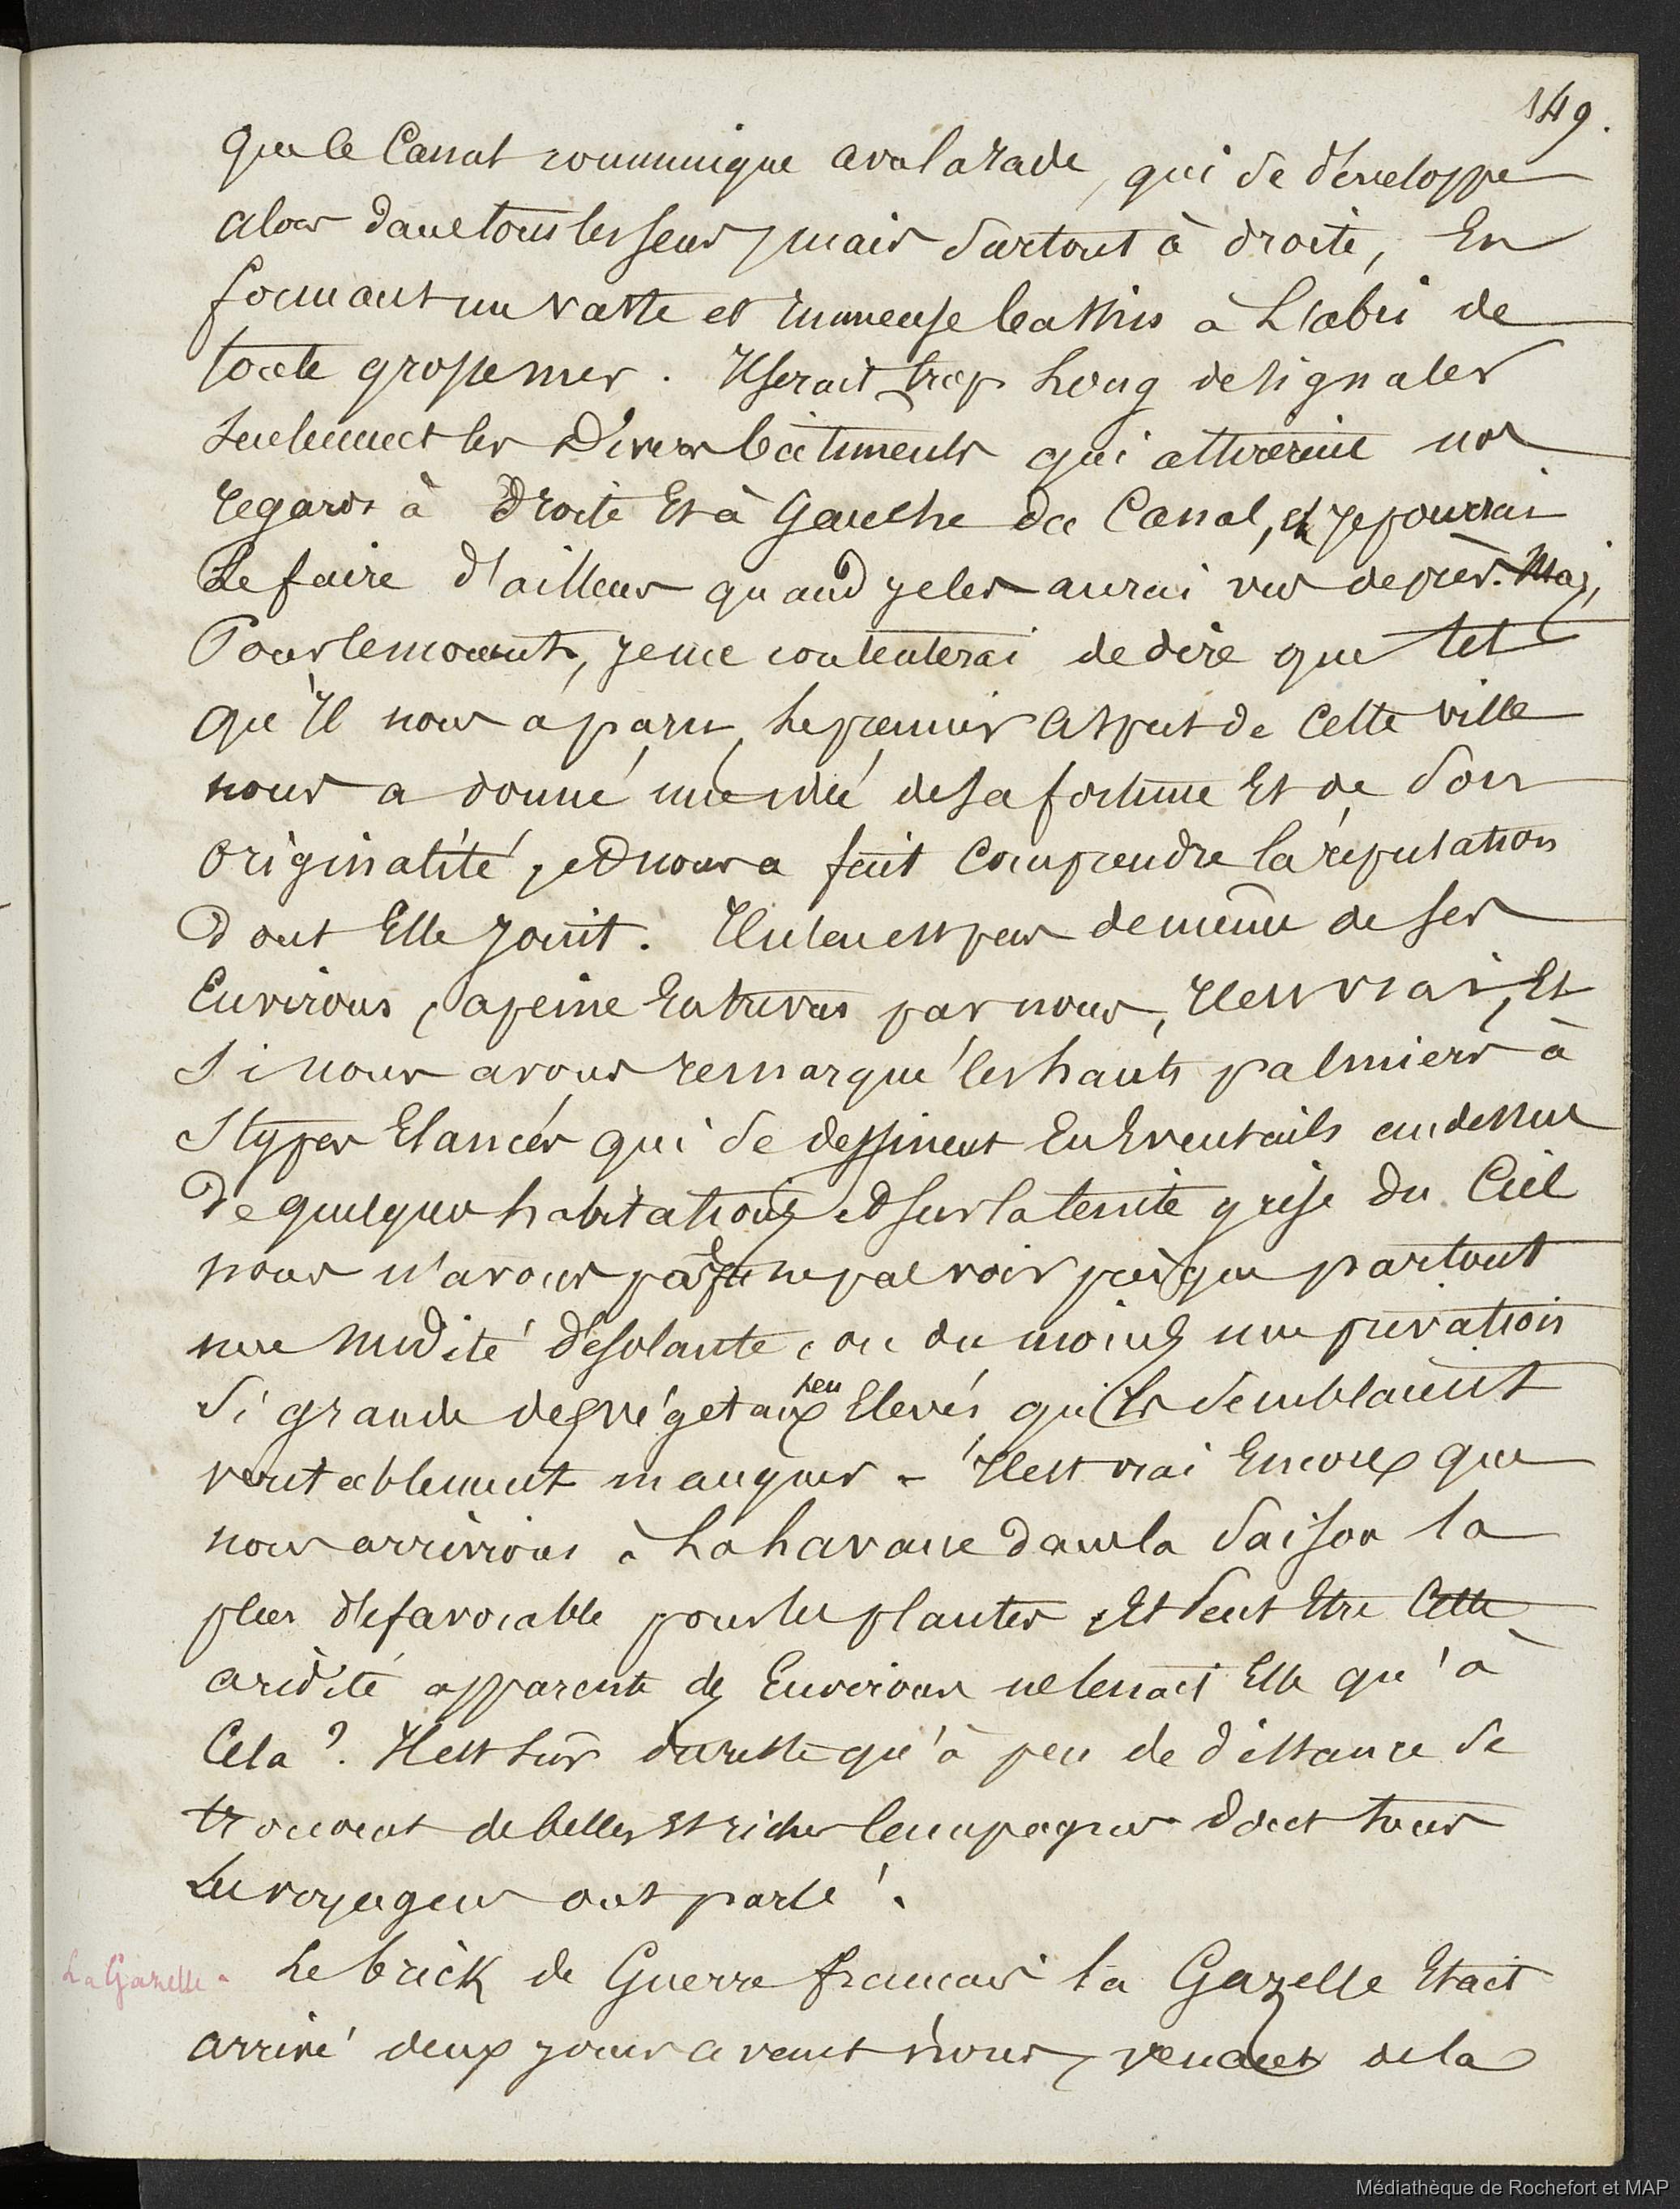 149.
que le Canal communique avec la rade, qui se développe
alors dans tous les sens, mais surtout à droite, En
formant un vaste et immense bassin à L'abri de
toute grosse mer. Il serait trop Long de signaler
seulement les Divers bâtiments qui attirèrent nos
regards à Droite Et à Gauche du Canal, et je pourrai
Le faire d'ailleurs quand je les aurai vus de près.
Pour le moment, je me contenterai de dire que tel
qu'Il nous a paru, Le premier Aspect de Cette ville
nous a donné une idée de sa fortune Et de son
originalité, et nous a fait Comprendre la réputation
dont Elle jouit. Il n'en est pas de même de ses
Environs, a peine Entrevus par nous, Il est vrai, Et
si nous avons remarqué les hauts palmiers à
stypes Elancés qui se dessinent En Eventails au dessus
De quelques habitations et sur la teinte grise du Ciel
nous n'avons pas pu ne pas voir presque partout
une nudité désolante, ou du moins une privation
si grande des végétaux peu Elevés qu'ils semblaient
veritablement manquer. Il est vrai Encore que
nous arrivions à La havane dans la saison la
plus défavorable pour les plantes Et Peut Etre Cette
aridité apparente des Environs ne tenait Elle qu'à
Cela ? Il est sûr du reste qu'à peu de distance se
trouvent de belles Et riches Campagnes dont tous
Les voyageurs ont parlé.
La Gazelle. Le brick de Guerre français la Gazelle Etait
arrivé deux jours avant nous, venant de la
Médiathèque de Rochefort et MAP